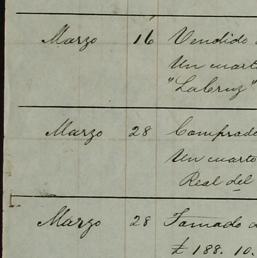 Marzo 16 Vendido
Un cuarto
"La Cruz"
Marzo 28 Comprado
Un cuarto
Real del
Marzo 28 Tomado
£ 188. 10.